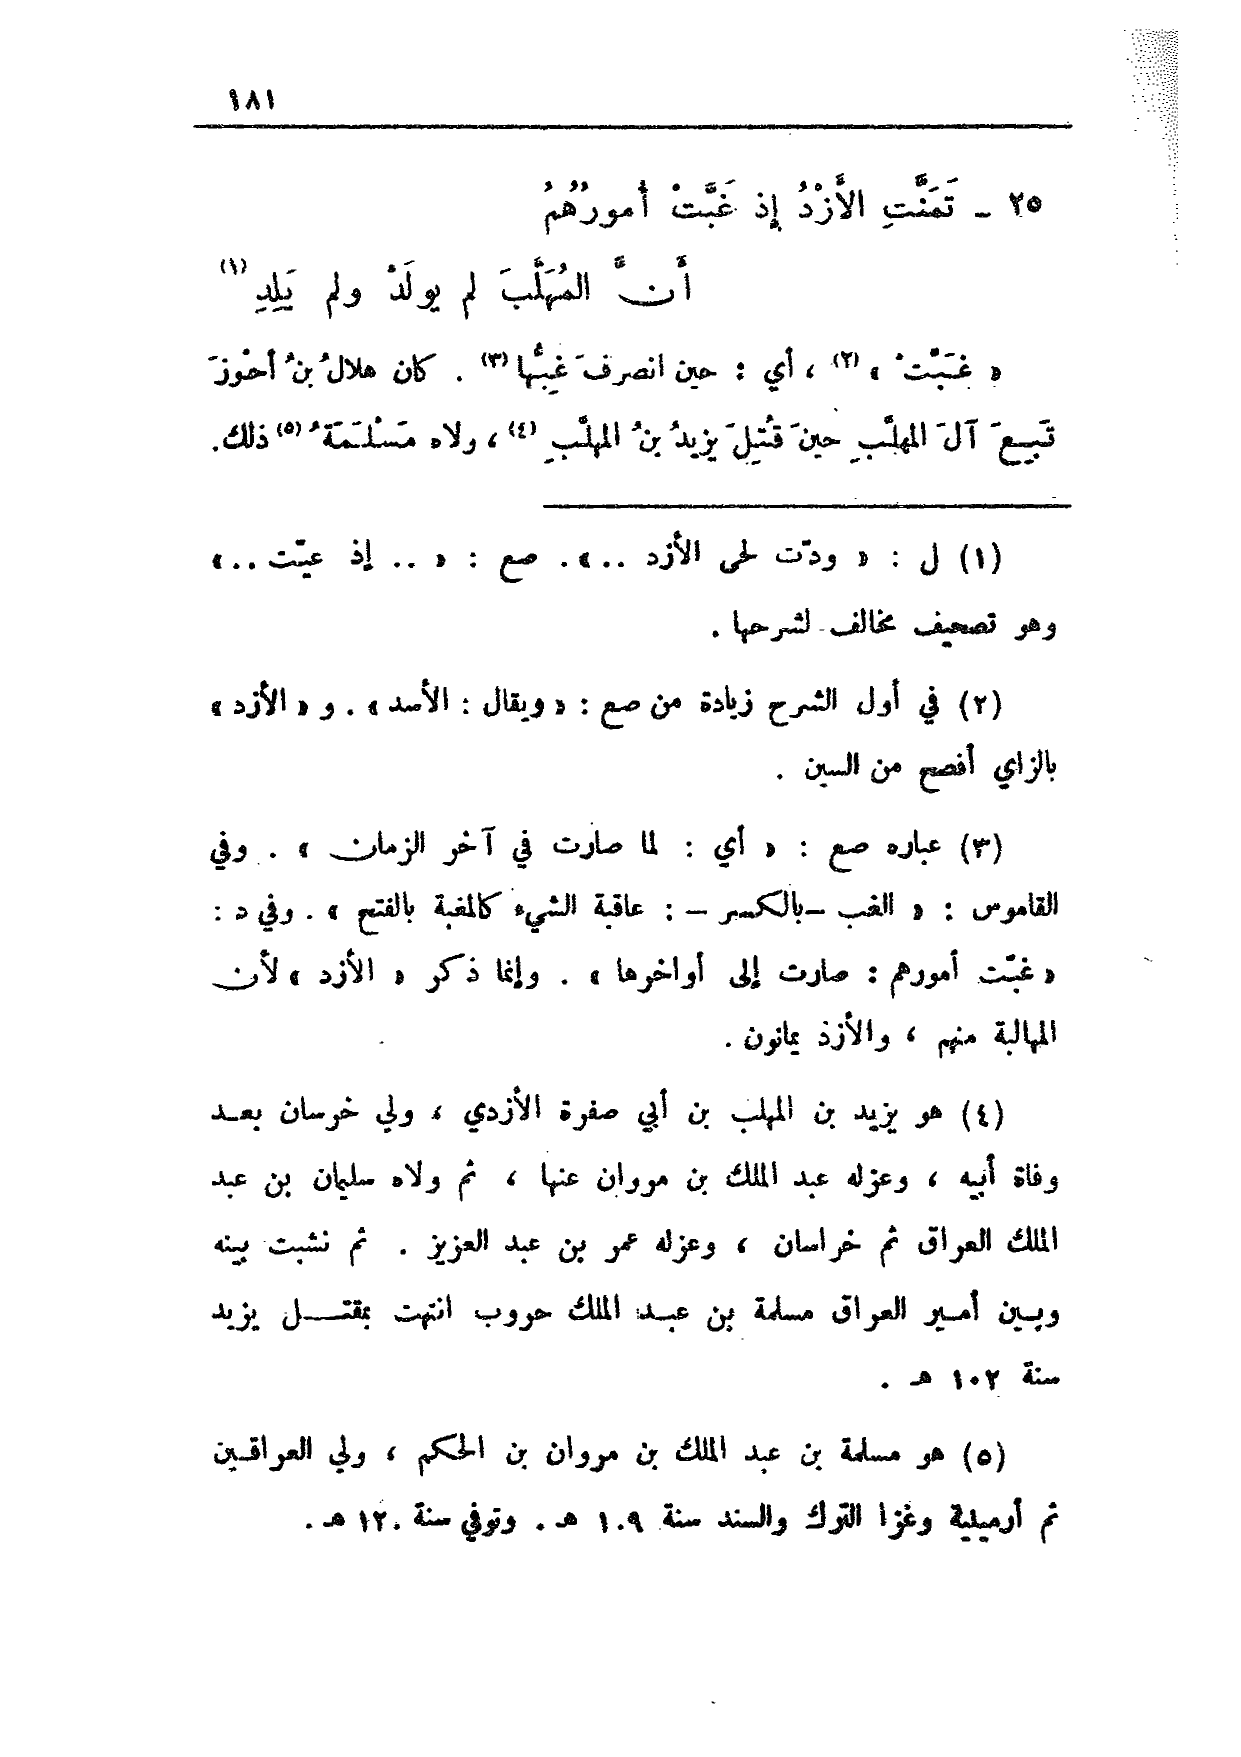 ١٨١
٢٥ ـ تَمَنَّتِ الأَزْدُ إِذ غَبَّتْ أُمورُهُمُ
أَنَّ المُهَلَّبَ لم يولَدْ ولم يَلِدِ (١)
« غَبَّتْ » (٢) ، أي : حين انصرفَ غِبُّها (٣) . كان هلالُ بنُ أحْوزَ
تَبِعَ آلَ المهلَّبِ حينَ قُتِلَ يزيدُ بنُ المهلَّبِ (٤) ، ولاه مَسْلَمَةُ (٥) ذلك.
(١) ل : « ودّت لحى الأزد .. » . صع : « .. إذ عيّت .. »
وهو تصحيف مخالف لشرحها .
(٢) في أول الشرح زيادة من صع : « ويقال : الأسد » . و « الأزد »
بالزاي أفصح من السين .
(٣) عباره صع : « أي : لما صارت في آخر الزمان » . وفي
القاموس : « الغب – بالكسر – : عاقبة الشيء كالمغبة بالفتح » . وفي د :
« غبّت أمورهم : صارت إلى أواخرها » . وإنما ذكر « الأزد » لأن
المهالبة منهم ، والأزذ يمانون .
(٤) هو يزيد بن المهلب بن أبي صفرة الأزدي ، ولي خرسان بعد
وفاة أبيه ، وعزله عبد الملك بن مروان عنها ، ثم ولاه سليمان بن عبد
الملك العراق ثم خراسان ، وعزله عمر بن عبد العزيز . ثم نشبت بينه
وبين أمير العراق مسلمة بن عبد الملك حروب انتهت بمقتل يزيد
سنة ١٠٢ هـ .
(٥) هو مسلمة بن عبد الملك بن مروان بن الحكم ، ولي العراقين
ثم أرمينية وغزا الترك والسند سنة ١٠٩ هـ . وتوفي سنة ١٢٠ هـ .